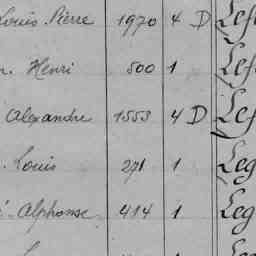 Louis Pierre 1970 4 D Lef
Henri 500 1 Lef
Alexandre 1553 4 D Lef
Louis 271 1 Leg
Alphonse 414 1 Leg